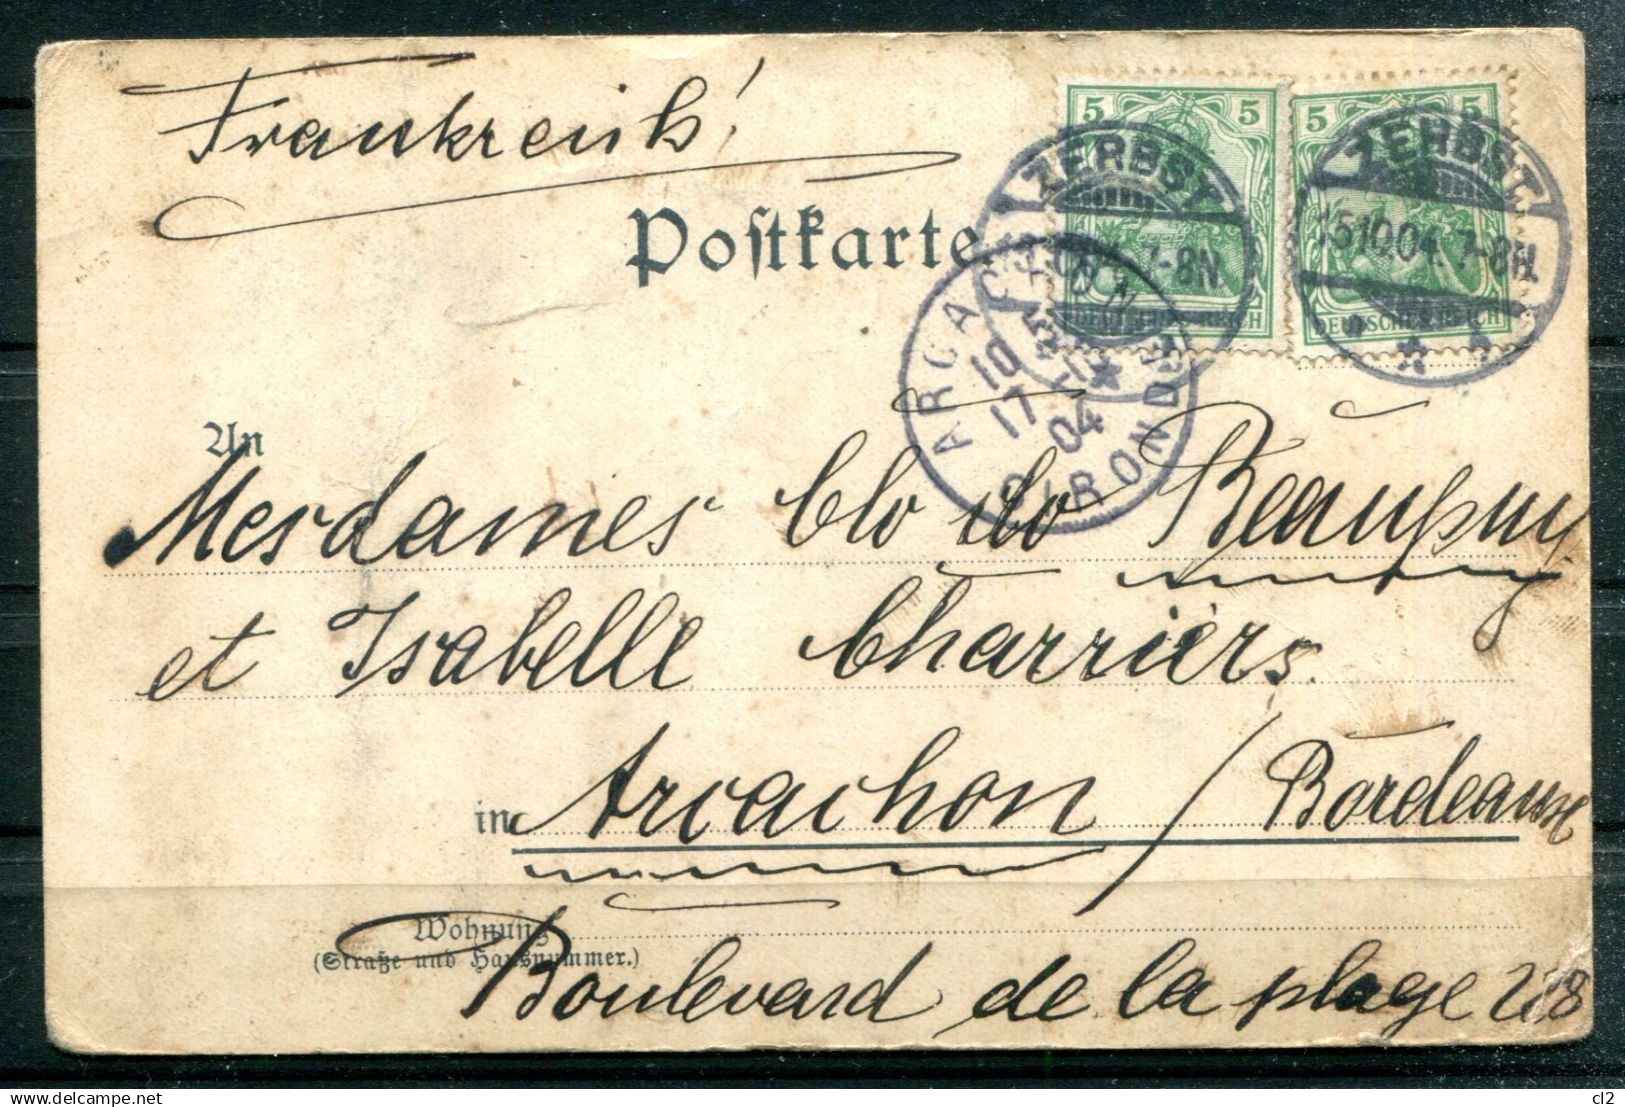 Frankreich!
Postkarte
5 5
5 5
DEUTSCHES REICH
DEUTSCHES REICH
ZERBST
7-8N
ZERBST
15.10.04. 7-8N.
ARCACHON
10
17 -10
04
GIRONDE
An
Mesdames Clo de Beaupuy
et Isabelle Charriers.
in Arcachon / Bordeaux
Wohnung
(Straße und Hausnummer.)
Boulevard de la plage 228
delcampe.net
cl2